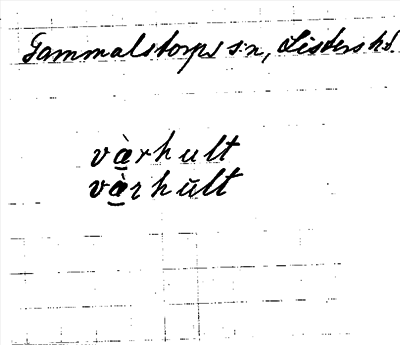 Gammalstorps s:n, Listers hd.
væ̀rhult
væ̀rhŭlt